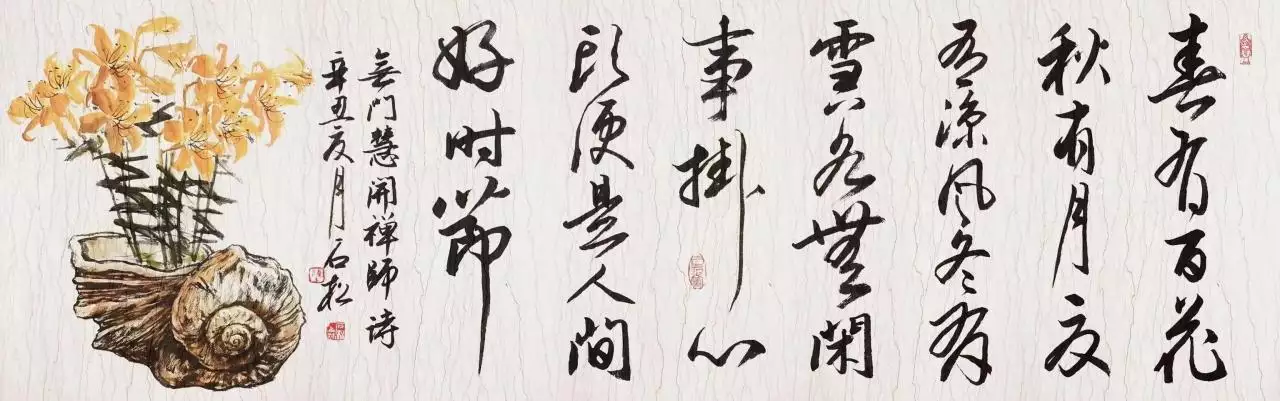 春有百花
秋有月夏
有凉风冬有
雪若無閑
事掛心
头便是人间
好时节
無门慧開禅師诗
辛丑夏月石松